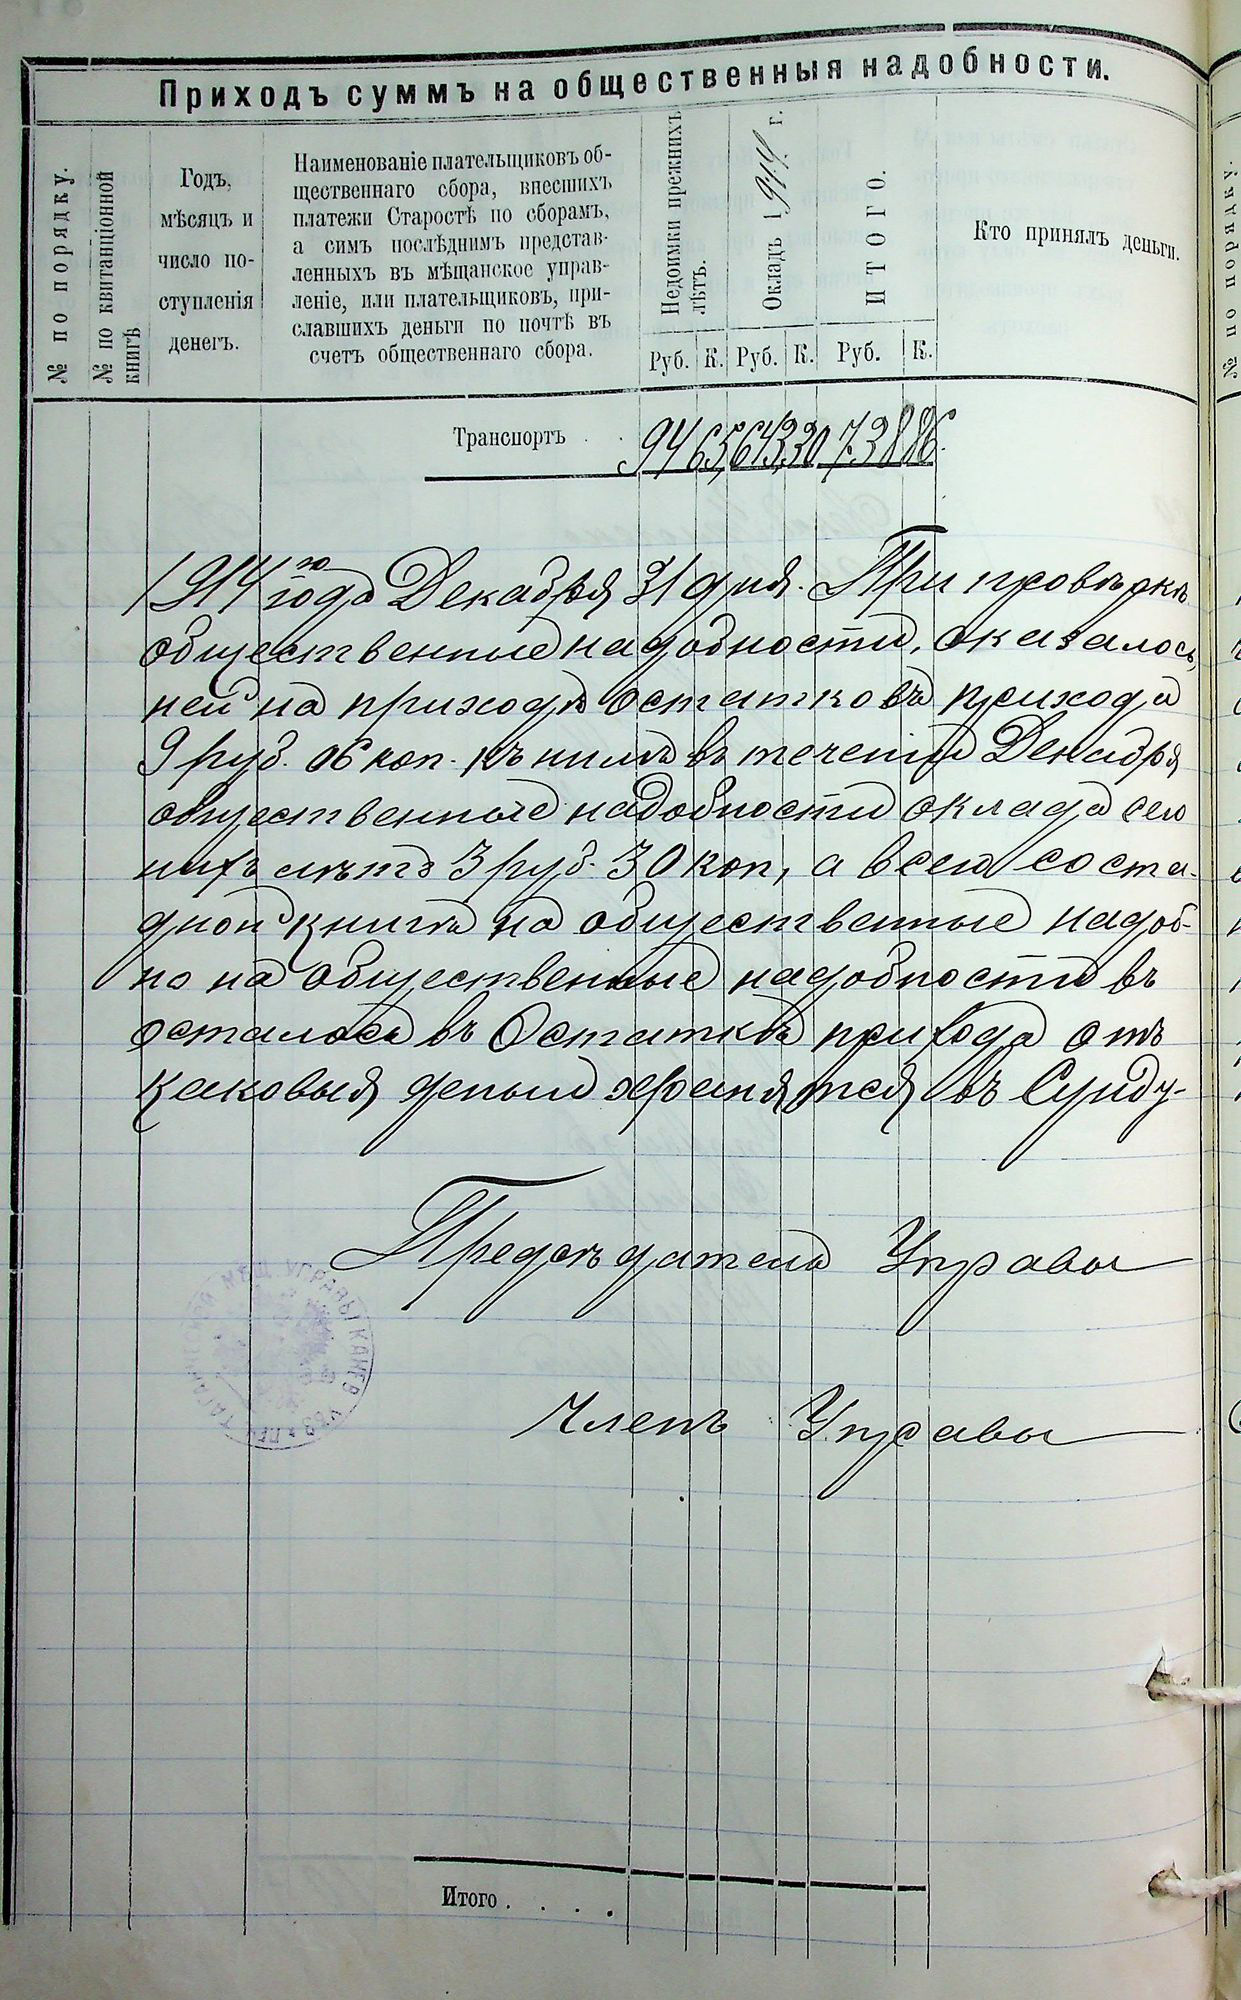 Приходъ суммъ на общественныя надобности.
№ по порядку.
№ по квитанціонной
книгѣ
Годъ,
мѣсяцъ и
число по-
ступленія
денегъ.
Наименованіе плательщиковъ об-
щественнаго сбора, внесшихъ
платежи Старостѣ по сборамъ,
а симъ послѣднимъ представ-
ленныхъ въ мѣщанское управ-
леніе, или плательщиковъ, при-
славшихъ деньги по почтѣ въ
счетъ общественнаго сбора.
Недоимки прежнихъ
лѣтъ.
Окладъ 1914 г.
ИТОГО.
Кто принялъ деньги.
Руб. К. Руб. К. Руб. К.
Транспортъ . . 94 65 643 30 738 86
1914 го года Декабря 31 дня. При провѣркѣ
общественные надобности, оказалось,
ней на приходѣ остатковъ прихода
9 руб. 06 коп. къ нимъ въ теченіи Декабря
общественные надобности оклада сего
нихъ лѣтъ 3 руб. 30 коп, а всего соста-
дной книгѣ на общественные надоб-
но на общественные надобности въ
осталось въ Остаткѣ прихода отъ
каковыя деньги хранятся въ Сунду-
Предсѣдатель Управы
Членъ Управы
МѢЩ. УПРАВЫ КАНЕВ. УѢЗ.
Итого . . . .